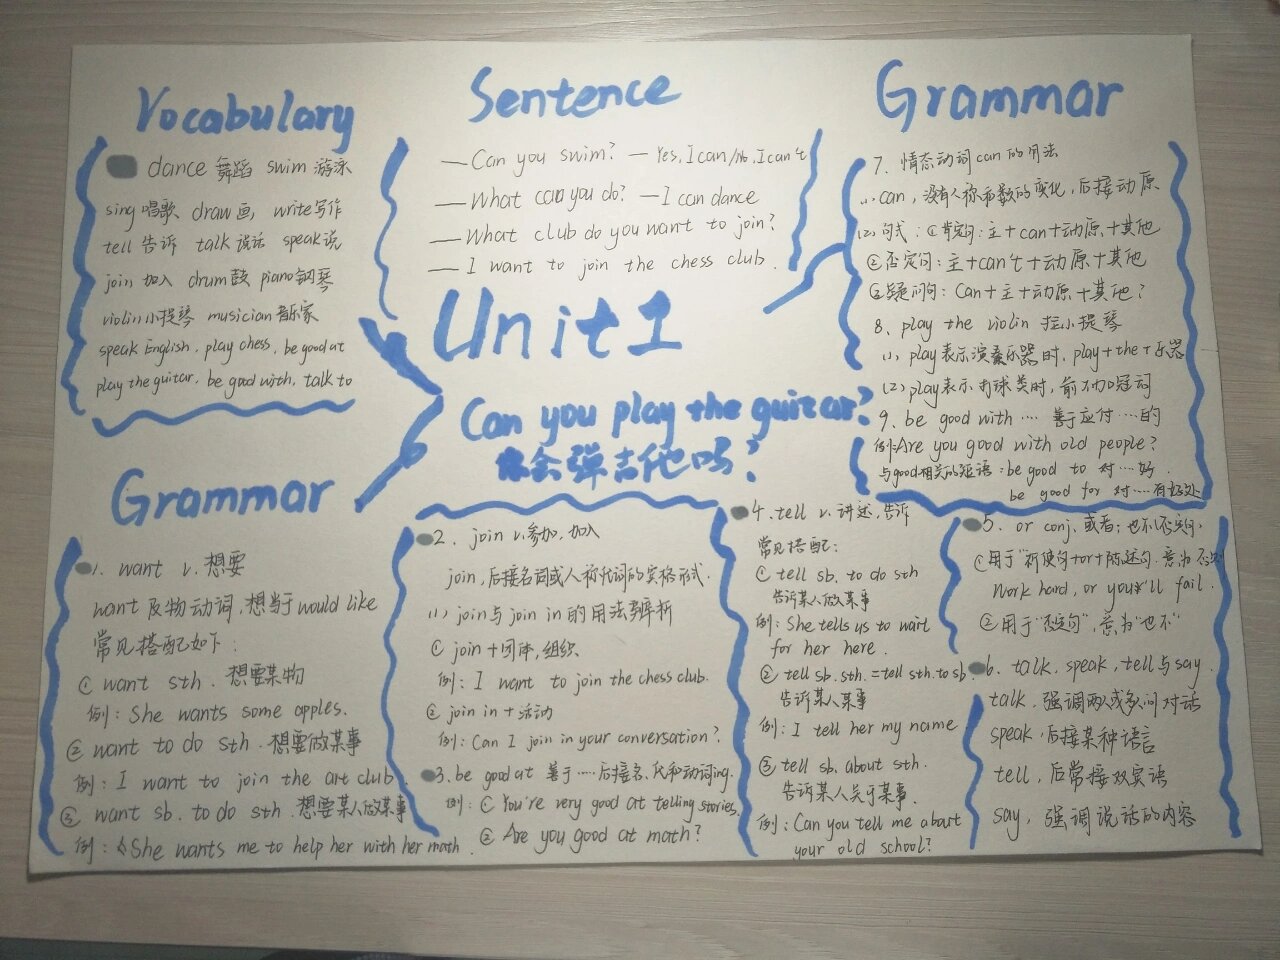 Vocabulary
dance 舞蹈 swim 游泳
sing 唱歌 draw 画, write 写作
tell 告诉 talk 说话 speak 说
join 加入 drum 鼓 piano 钢琴
violin 小提琴 musician 音乐家
speak English, play chess, be good at
play the guitar, be good with, talk to
Sentence
—Can you swim? — Yes, I can/No, I can't
—What can you do? —I can dance
—What club do you want to join?
—I want to join the chess club.
Unit1
Can you play the guitar?
你会弹吉他吗?
Grammar
1. want v. 想要
want 及物动词,相当于would like
常见搭配如下:
① want sth. 想要某物
例: She wants some apples.
② want to do sth. 想要做某事
例: I want to join the art club.
③ want sb. to do sth 想要某人做某事
例: She wants me to help her with her math.
2. join v.参加,加入
join,后接名词或人称代词的宾格形式.
(1) join与join in的用法辨析
① join+团体,组织.
例: I want to join the chess club.
② join in+活动
例: Can I join in your conversation?
3. be good at 善于……后接名、代和动词ing.
例: ① You're very good at telling stories.
② Are you good at math?
4. tell v. 讲述,告诉
常见搭配:
① tell sb. to do sth
告诉某人做某事
例: She tells us to wait
for her here.
② tell sb. sth. = tell sth. to sb
告诉某人某事
例: I tell her my name
③ tell sb. about sth.
告诉某人关于某事.
例: Can you tell me about
your old school?
5. or conj. 或者;也不(否定句)
①用于"祈使句+or+陈述句.意为 否则
Work hard, or you'll fail.
②用于"否定句",意为"也不"
6. talk, speak, tell与say.
talk. 强调两人或多人间对话
speak. 后接某种语言
tell, 后常接双宾语
say, 强调说话的内容
Grammar
7. 情态动词can的用法
(1) can, 没有人称和数的变化,后接动原
(2) 句式:①肯定句:主+can+动原+其他
②否定句:主+can't+动原+其他
③疑问句:Can+主+动原+其他?
8. play the violin 拉小提琴
(1) play表示演奏乐器时, play+the+乐器
(2) play表示打球类时,前不加冠词
9. be good with … 善于应付…的
例:Are you good with old people?
与good相关的短语:be good to 对…好.
be good for 对…有好处